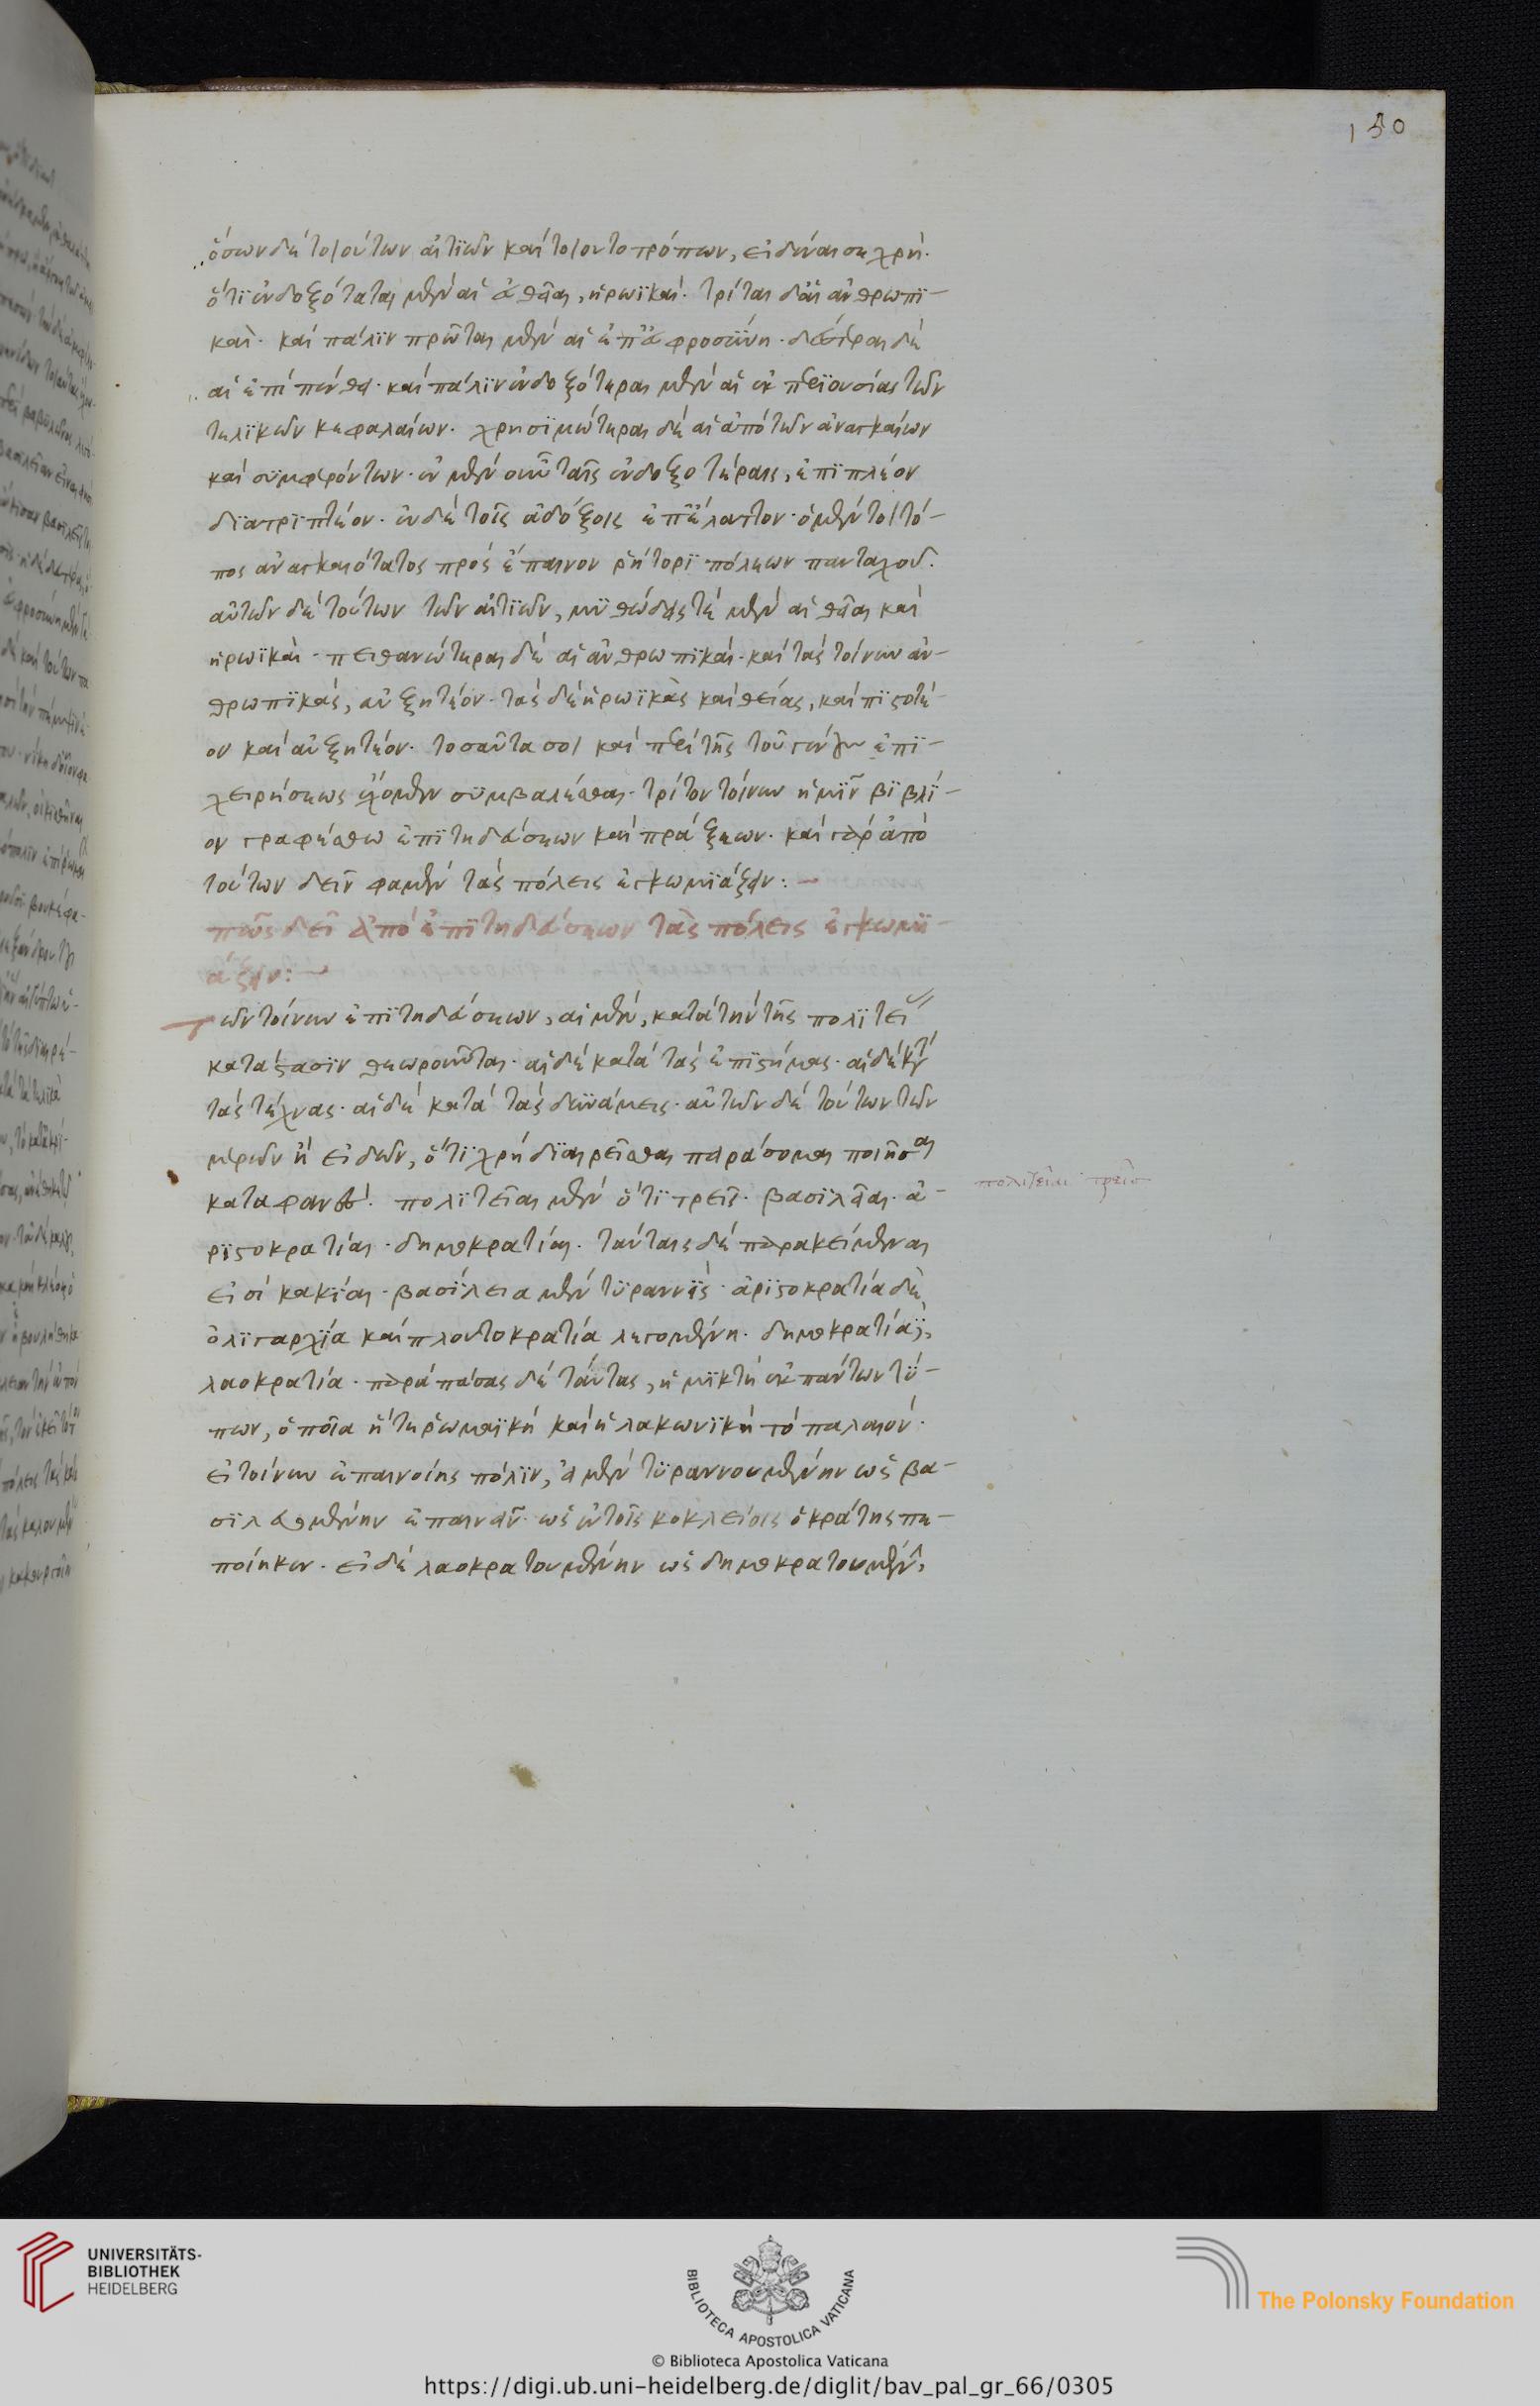 150
ὅσων δὲ τοιούτων αἰτϊῶν καὶ τοιουτοτρόπων, εἰδέναι σε χρή.
ὅτϊ ἐνδοξόταται μὲν αἱ θεῖαι, ἡρωϊκαί. τρίται δὲ αἱ ἀνθρωπϊ-
καί. καὶ πάλϊν πρῶται μὲν αἱ ἐπ' εὐφροσΰνη. δεύτεραι δὲ
αἱ ἐπὶ πένθει. καὶ πάλϊν ἐνδοξότεραι μὲν αἱ ἐκ περϊουσίας τῶν
τελϊκῶν κεφαλαίων. χρησϊμώτεραι δὲ αἱ ἀπὸ τῶν ἀναγκαίων
καὶ συμφερόντων. ἐν μὲν οὖν ταῖς ἐνδοξοτέραις, ἐπϊπλέον
δϊατρϊπτέον. ἐν δὲ τοῖς ἀδόξοις ἐπ' ἔλαττον. ὁ μέντοι τό-
πος ἀναγκαιότατος πρὸς ἔπαινον ῥήτορϊ πόλεων πανταχοῦ.
αὐτῶν δὲ τούτων τῶν αἰτϊῶν, μϋθώδεις τὲ μὲν αἱ θεῖαι καὶ
ἡρωϊκαὶ. πειθανώτεραι δὲ αἱ ἀνθρωπϊκαί. καὶ τὰς τοίνυν ἀν-
θρωπϊκὰς, αὐξητέον. τὰς δὲ ἡρωϊκὰς καὶ θείας, καὶ πϊστέ-
ον καὶ αὐξητέον. τοσαῦτά σοι καὶ περὶ τῆς τοῦ γένους ἐπϊ-
χειρήσεως ἔχομεν συμβαλέσθαι. τρίτον τοίνυν ἡμῖν βϊβλί-
ον γραφέσθω ἐπϊτηδεύσεων καὶ πράξεων. καὶ γὰρ ἀπὸ
τούτων δεῖν φαμὲν τὰς πόλεις ἐγκωμϊάζειν: —
πῶς δεῖ ἀπὸ ἐπϊτηδεύσεων τὰς πόλεις ἐγκωμϊ-
άζειν: —
Τῶν τοίνυν ἐπϊτηδεύσεων, αἱ μὲν, κατὰ τὴν τῆς πολϊτεί
κατάστασϊν θεωροῦνται. αἱ δὲ κατὰ τὰς ἐπϊστήμας. αἱ δὲ κατὰ
τὰς τέχνας. αἱ δὲ κατὰ τὰς δϋνάμεις. αὐτῶν δὲ τούτων τῶν
μερῶν ἢ εἰδῶν, ὅτϊ χρὴ δϊαιρεῖσθαι πειράσομαι ποιῆσαι
καταφανές. πολϊτεῖαι μὲν ὅτϊ τρεῖς. βασϊλεῖαι. ἀ-
ρϊστοκρατίαι. δημοκρατίαι. ταύταις δὲ παρακείμεναι
εἰσὶ κακίαι. βασΐλεια μὲν τϋραννϊς. ἀρϊστοκρατία δὲ
ὀλϊγαρχϊα καὶ πλουτοκρατία λεγομένη. δημοκρατίαϊς,
λαοκρατία. παρὰ πάσας δὲ ταύτας, ἡ μϊκτὴ ἐκ πάντων τΰ-
πων, ὁποῖα ἥ τε ῥωμαϊκὴ καὶ ἡ λακωνϊκὴ τὸ παλαιόν.
εἰ τοίνυν ἐπαινοίης πόλϊν, εἰ μὲν τϋραννουμένην ὡς βα-
σϊλευομένην ἐπαινεῖν. ὡς ἐν τοῖς κοκλείοις ὁ κράτης πε-
ποίηκεν. εἰ δὲ λαοκρατουμένην ὡς δημοκρατουμένην,
πολιτεῖαι τρεῖσ
UNIVERSITÄTS-
BIBLIOTHEK
HEIDELBERG
BIBLIOTECA APOSTOLICA VATICANA
The Polonsky Foundation
© Biblioteca Apostolica Vaticana
https://digi.ub.uni-heidelberg.de/diglit/bav_pal_gr_66/0305